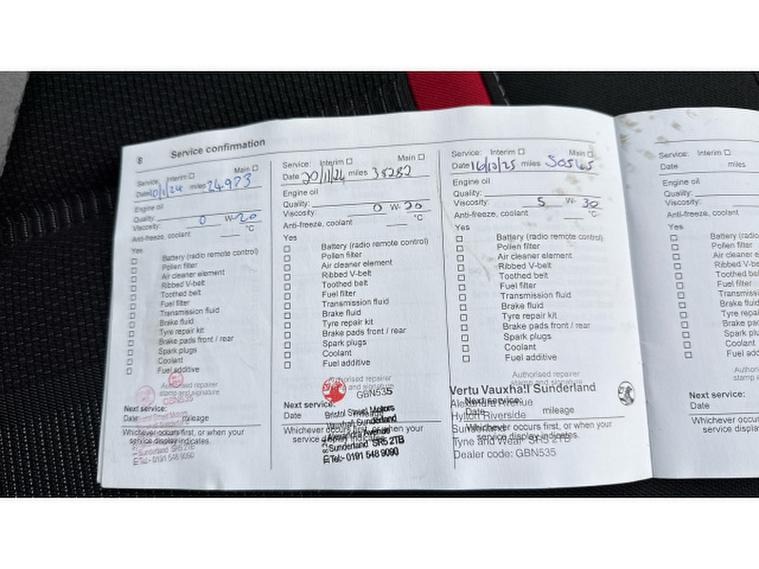 8 Service confirmation
Service: Interim ☐ Main ☐
Date 10/1/24 miles 24,973
Engine oil
Quality:
Viscosity: 0 W- 20
Anti-freeze, coolant °C
Yes
☐ Battery (radio remote control)
☐ Pollen filter
☐ Air cleaner element
☐ Ribbed V-belt
☐ Toothed belt
☐ Fuel filter
☐ Transmission fluid
☐ Brake fluid
☐ Tyre repair kit
☐ Brake pads front / rear
☐ Spark plugs
☐ Coolant
☐ Fuel additive
Authorised repairer
stamp and signature
GBN535
Next service:
Date mileage
Bristol Street Motors
Whichever occurs first, or when your
service display indicates.
Sunderland SR5 2TB
Tel:- 0191 548 9090
Service: Interim ☐ Main ☐
Date 20/11/24 miles 38282
Engine oil
Quality:
Viscosity: 0 W- 20
Anti-freeze, coolant °C
Yes
☐ Battery (radio remote control)
☐ Pollen filter
☐ Air cleaner element
☐ Ribbed V-belt
☐ Toothed belt
☐ Fuel filter
☐ Transmission fluid
☐ Brake fluid
☐ Tyre repair kit
☐ Brake pads front / rear
☐ Spark plugs
☐ Coolant
☐ Fuel additive
Authorised repairer
stamp and signature
GBN535
Next service:
Date mileage
Bristol Street Motors
Vauxhall Sunderland
Alexandra Avenue
Whichever occurs first, or when your
service display indicates.
Sunderland SR5 2TB
Tel:- 0191 548 9090
Service: Interim ☐ Main ☐
Date miles 50565
Engine oil
Quality:
Viscosity: 5 W- 30
Anti-freeze, coolant °C
Yes
☐ Battery (radio remote control)
☐ Pollen filter
☐ Air cleaner element
☐ Ribbed V-belt
☐ Toothed belt
☐ Fuel filter
☐ Transmission fluid
☐ Brake fluid
☐ Tyre repair kit
☐ Brake pads front / rear
☐ Spark plugs
☐ Coolant
☐ Fuel additive
Authorised repairer
stamp and signature
Vertu Vauxhall Sunderland
Alexandra Avenue
Next service:
Date mileage
Hylton Riverside
Sunderland
Whichever occurs first, or when your
service display indicates.
Tyne and Wear SR5 2TB
Dealer code: GBN535
Service: Interim ☐
Date miles
Engine oil
Quality:
Viscosity:
Anti-freeze, coolant
Yes
☐ Battery (radio
☐ Pollen filter
☐ Air cleaner
☐ Ribbed V-be
☐ Toothed be
☐ Fuel filter
☐ Transmiss
☐ Brake fluid
☐ Tyre repai
☐ Brake pad
☐ Spark plu
☐ Coolant
☐ Fuel add
Authorise
stamp
Next service:
Date
Whichever occurs
service displa